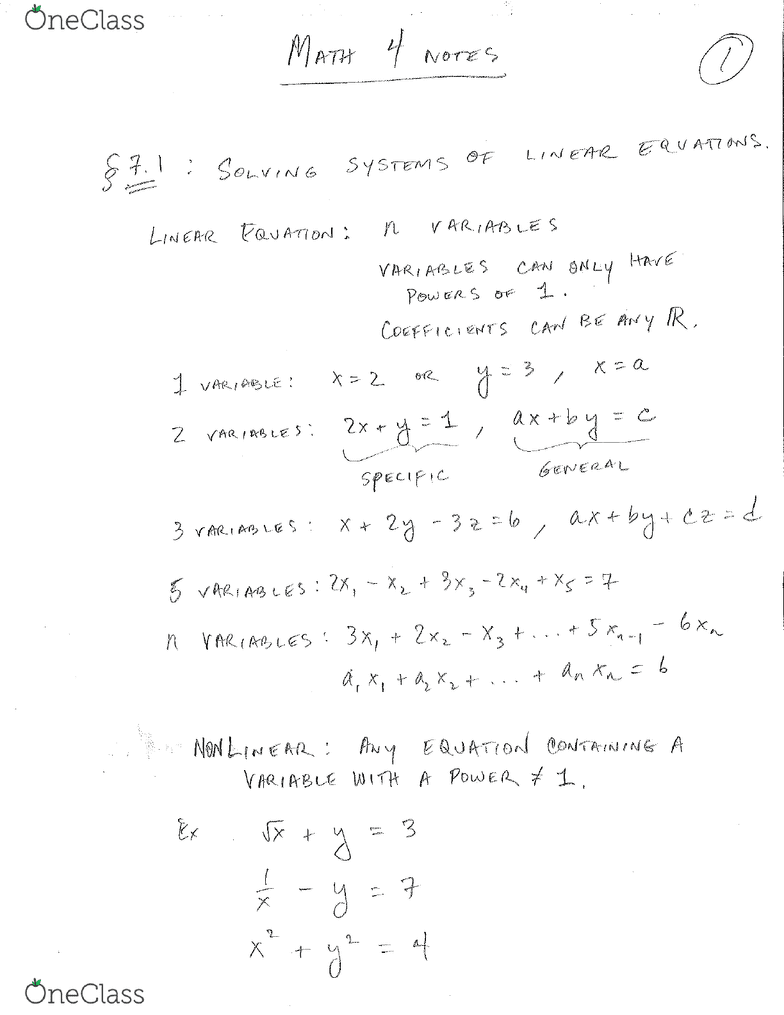 OneClass
MATH 4 NOTES
1
§ 7.1 : SOLVING SYSTEMS OF LINEAR EQUATIONS.
LINEAR EQUATION : n VARIABLES
VARIABLES CAN ONLY HAVE
POWERS OF 1.
COEFFICIENTS CAN BE ANY ℝ.
1 VARIABLE : x = 2 OR y = 3 , x = a
2 VARIABLES : 2x + y = 1 , ax + by = c
SPECIFIC GENERAL
3 VARIABLES : x + 2y - 3z = 6 , ax + by + cz = d
5 VARIABLES : 2x₁ - x₂ + 3x₃ - 2x₄ + x₅ = 7
n VARIABLES : 3x₁ + 2x₂ - x₃ + ... + 5xₙ₋₁ - 6xₙ
a₁x₁ + a₂x₂ + ... + aₙxₙ = b
NONLINEAR : ANY EQUATION CONTAINING A
VARIABLE WITH A POWER ≠ 1.
Ex √x + y = 3
1/x - y = 7
x² + y² = 4
OneClass